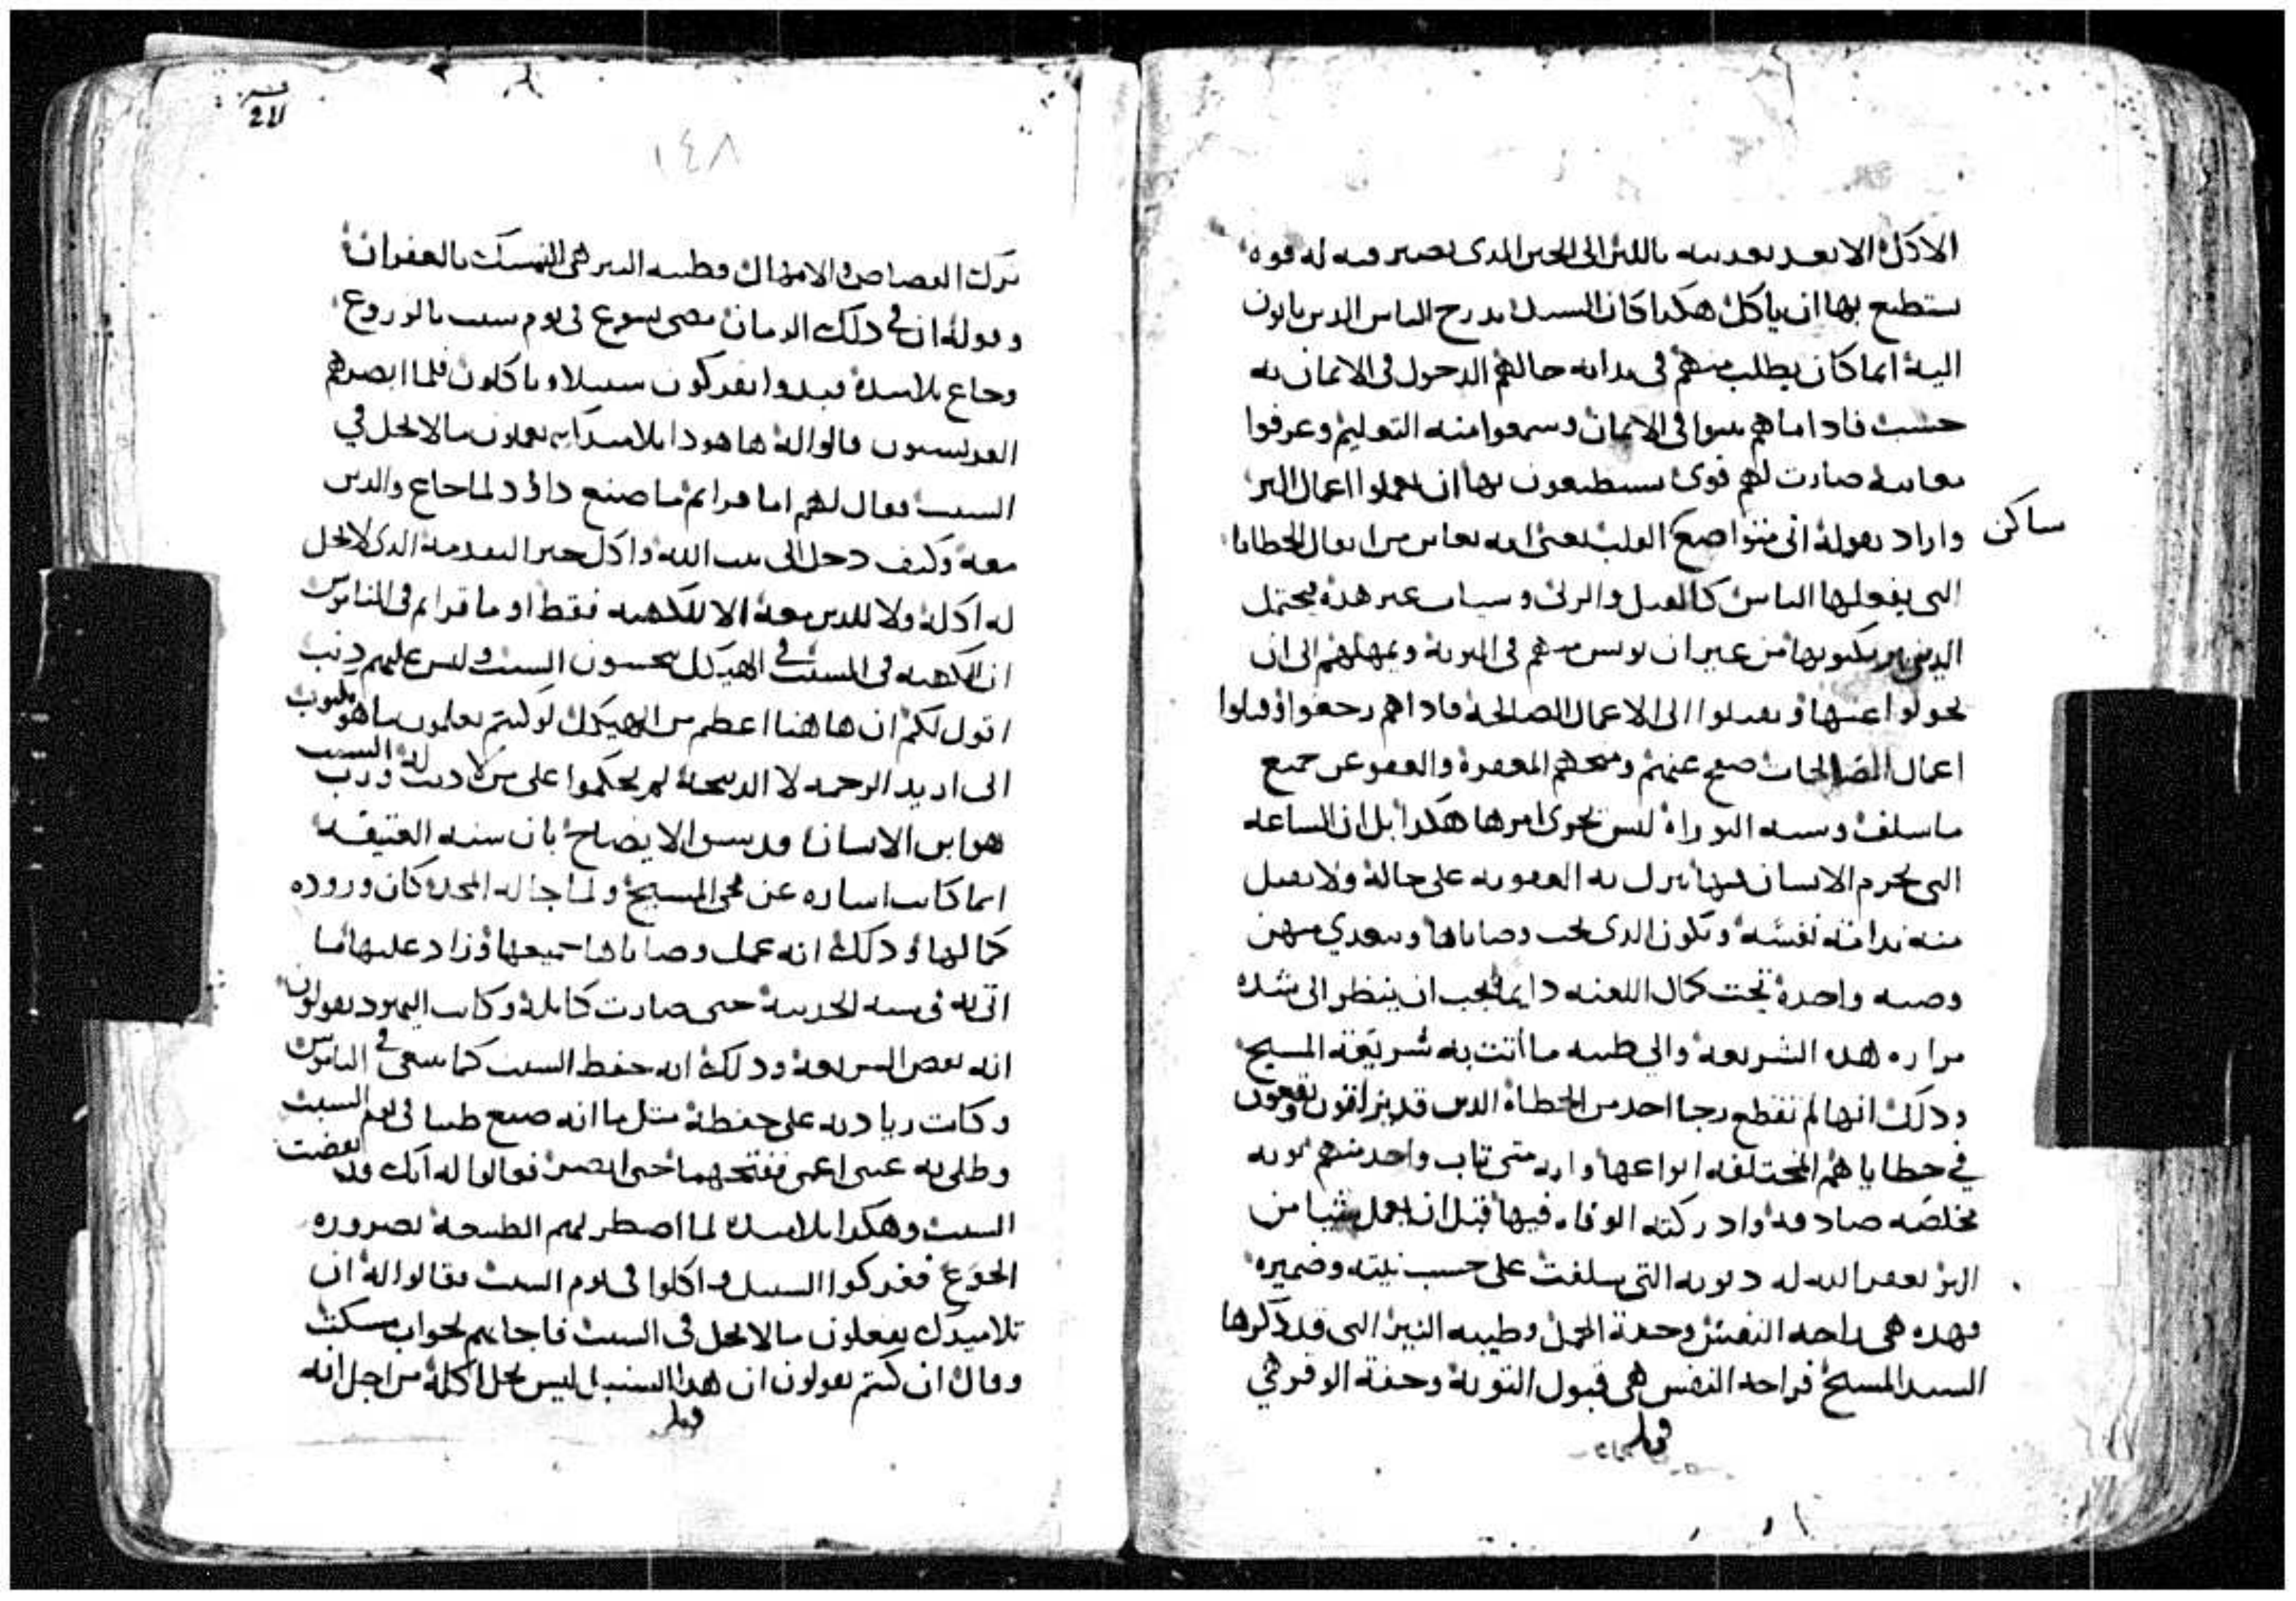 الاكل الا بعد تغديته باللبن الى الحين الدى تصير فيه له قوه
يستطيع بها ان ياكل هكدا كان السيد يدرج الناس الدين ياتون
اليه انما كان يطلب منهم فى بدايه حالهم الدخول فى الايمان به
حسب فادا ما هم ثبتوا فى الايمان وسمعوا منه التعليم وعرفوا
معانيه صارت لهم قوى يستطيعون بها ان يعملوا اعمال البر
ساكن
واراد بقوله انى متواضع القلب يعنى انه من افعال الخطايا
التى يفعلها الناس كالقتل والزنى وسيات غير هده يحتمل
الدين يرتكبوبها من غير ان يويس منهم فى التوبة ويمهلهم الى ان
يحولوا عنها ويقبلوا الى الاعمال الصالحة فادا هم رجعوا وقبلوا
اعمال الصالحات صفح عنهم ومنحهم المغفرة والعفو عن جميع
ما سلف وسنه التوراة ليس يجرى امرها هكدا بل ان الساعه
التى يجرم الانسان فيها ينزل به العقوبه على حالة ولا يقبل
منه ندامة نفسه ويكون الدى يحب وصاياها ويتعدي منهن
وصيه واحدة تحت كمال اللعنه دايما يجب ان ينظر الى شده
مراره هده الشريعه والى طيبه ما اتت به شريعة المسيح
ودلك انها لم تقطع رجا احد من الخطاة الدين قد يزلقون ويقعون
في خطاياهم المختلفه انواعها وانه متى تاب واحد منهم توبه
مخلصه صادقه وادركته الوفاه فيها قبل ان يعمل شيا من
البر يغفر الله له دنوبه التى سلفت على حسب نيته وضميره
فهده هى راحه النفس وخفة الحمل وطيبه النير التى قد دكرها
السيد المسيح فراحه النفس هى قبول التوبة وخفة الوقر هي
قوبل
١٤٨
ترك القصاص والامهال وطيبه النير هى التمسك بالغفران
وقوله ان في دلك الزمان مضى يسوع فى يوم سبت بالزروع
وجاع تلاميده فبدوا يفركون سنبلا وياكلون فلما ابصرهم
الفريسيون قالوا له ها هودا تلاميدك يعملون ما لا يحل في
السبت فقال لهم اما قراتم ما صنع داود لما جاع والدين
معه وكيف دخل الى بيت الله واكل خبز التقدمه الدى لا يحل
له اكله ولا للدين معه الا للكهنه فقط او ما قراتم فى الناموس
ان الكهنه فى السبت في الهيكل ينجسون السبت وليس عليهم دنب
اقول لكم ان هاهنا اعظم من الهيكل لو كنتم تعلمون ما هو مكتوب
انى اريد الرحمه لا الدبيحة لم تحكموا على من لا دنب له ورب السبت
هو ابن الانسان قد يسن الايضاح بان سنه العتيقه
انما كانت اشاره عن مجى المسيح ولما جا له المجد كان وروده
كمالها ودلك انه عمل وصاياها جميعها وزاد عليها ما
اتى به فى سنه الحديثة حتى صارت كاملة وكانت اليهود يقولون
انه نقض الشريعة ودلك انه حفظ السبت كما ينبغى في الناموس
وكانت زيادته على حفظة مثل ما انه صنع طينا فى يوم السبت
وطلى به عينى اعمى ففتحهما حتى ابصر فقالوا له انك قد نقضت
السبت وهكدا تلاميده لما اضطرتهم الطبيعة لضروره
الجوع ففركوا السنبل واكلوا فى يوم السبت فقالوا له ان
تلاميدك يفعلون ما لا يحل فى السبت فاجابهم بجواب مسكت
وقال ان كنتم تقولون ان هدا السنبل ليس يحل اكلة من اجل انه
قوبل